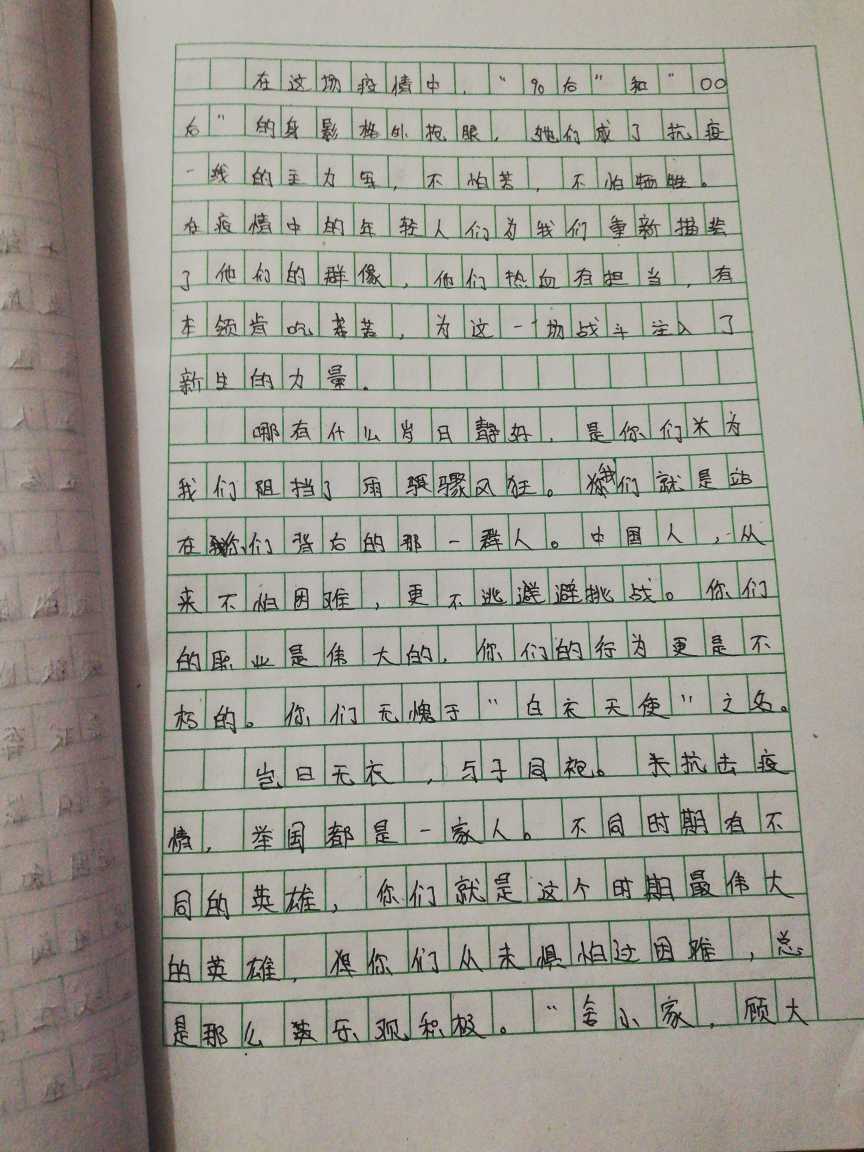 在这场疫情中，“90后”和“00
后”的身影格外抢眼，她们成了抗疫
一线的主力军，不怕苦，不怕牺牲。
在疫情中的年轻人们为我们重新描绘
了他们的群像，他们热血有担当，有
本领肯吃苦，为这一场战斗注入了
新生的力量。
哪有什么岁月静好，是你们为
我们阻挡了雨骤风狂。我们就是站
在你们背后的那一群人。中国人，从
来不怕困难，更不逃避挑战。你们
的职业是伟大的，你们的行为更是不
朽的。你们无愧于“白衣天使”之名。
岂曰无衣，与子同袍。共抗击疫
情，举国都是一家人。不同时期有不
同的英雄，你们就是这个时期最伟大
的英雄，你们从未惧怕过困难，总
是那么乐观积极。“舍小家，顾大